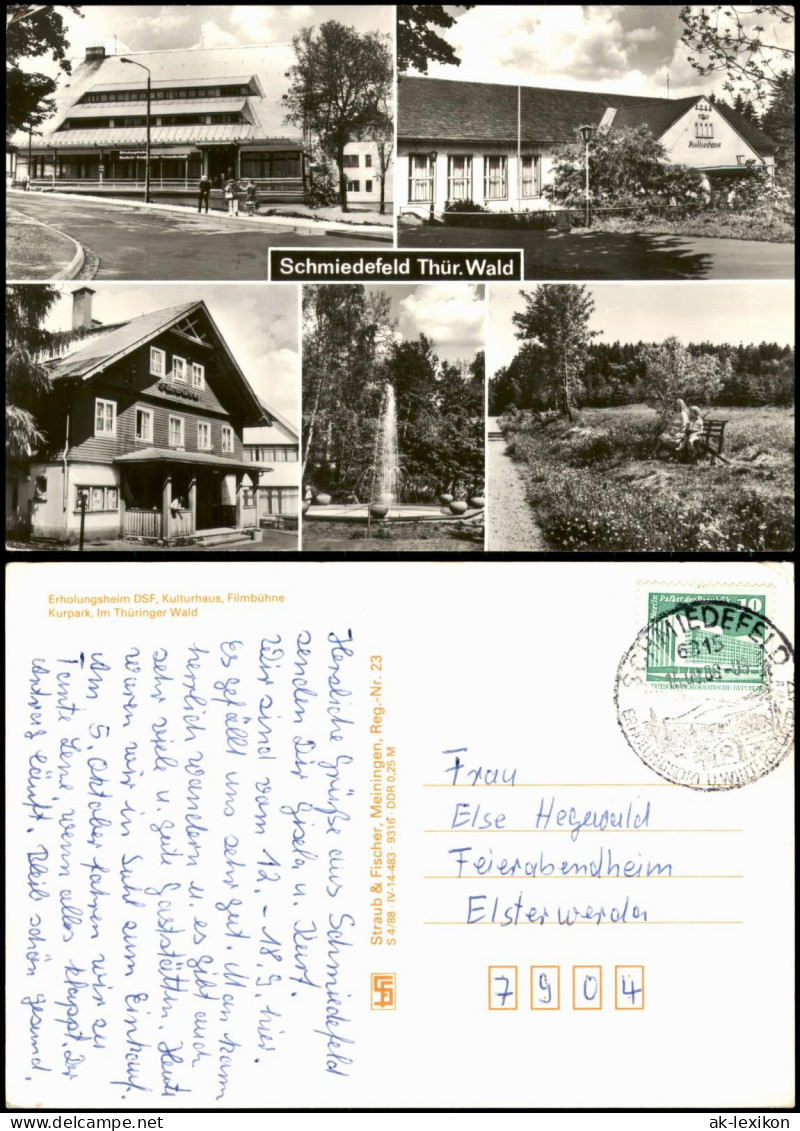 Kulturhaus
Schmiedefeld Thür. Wald
Erholungsheim DSF, Kulturhaus, Filmbühne
Kurpark, Im Thüringer Wald
Herzliche Grüße aus Schmiedefeld
senden Dir Gisela u. Kurt.
Wir sind vom 12. - 18.9. hier.
Es gefällt uns sehr gut. Man kann
herrlich wandern u. es gibt auch
sehr viele u. gute Gaststätten. Heute
waren wir in Suhl zum Einkauf.
Am 5. Oktober fahren wir zu
Tante Lene, wenn alles klappt. Der
Antrag läuft. Bleib schön gesund.
Straub & Fischer, Meiningen, Reg.-Nr. 23
S 4/88 · IV-14-483 · 9316 · DDR 0,25 M
Berlin Palast der Republik 10
SCHMIEDEFELD
6315
Frau
Else Hegewald
Feierabendheim
Elsterwerda
7 9 0 4
www.ansichtskarten-lexikon.de
ak-lexikon